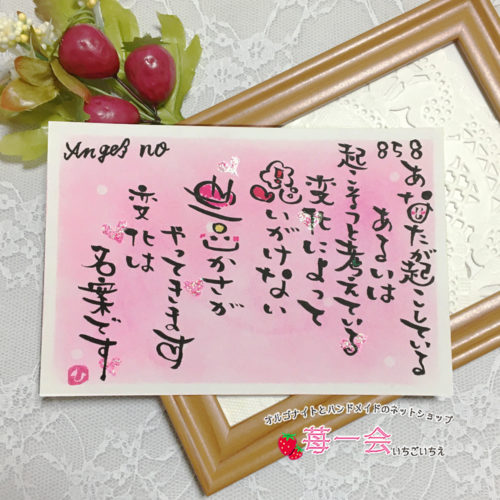 Angel no
858
あなたが起こしている
あるいは
起こそうと考えている
変化によって
思いがけない
豊かさが
やってきます
変化は
名案です
オルゴナイトとハンドメイドのネットショップ
苺一会
いちごいちえ